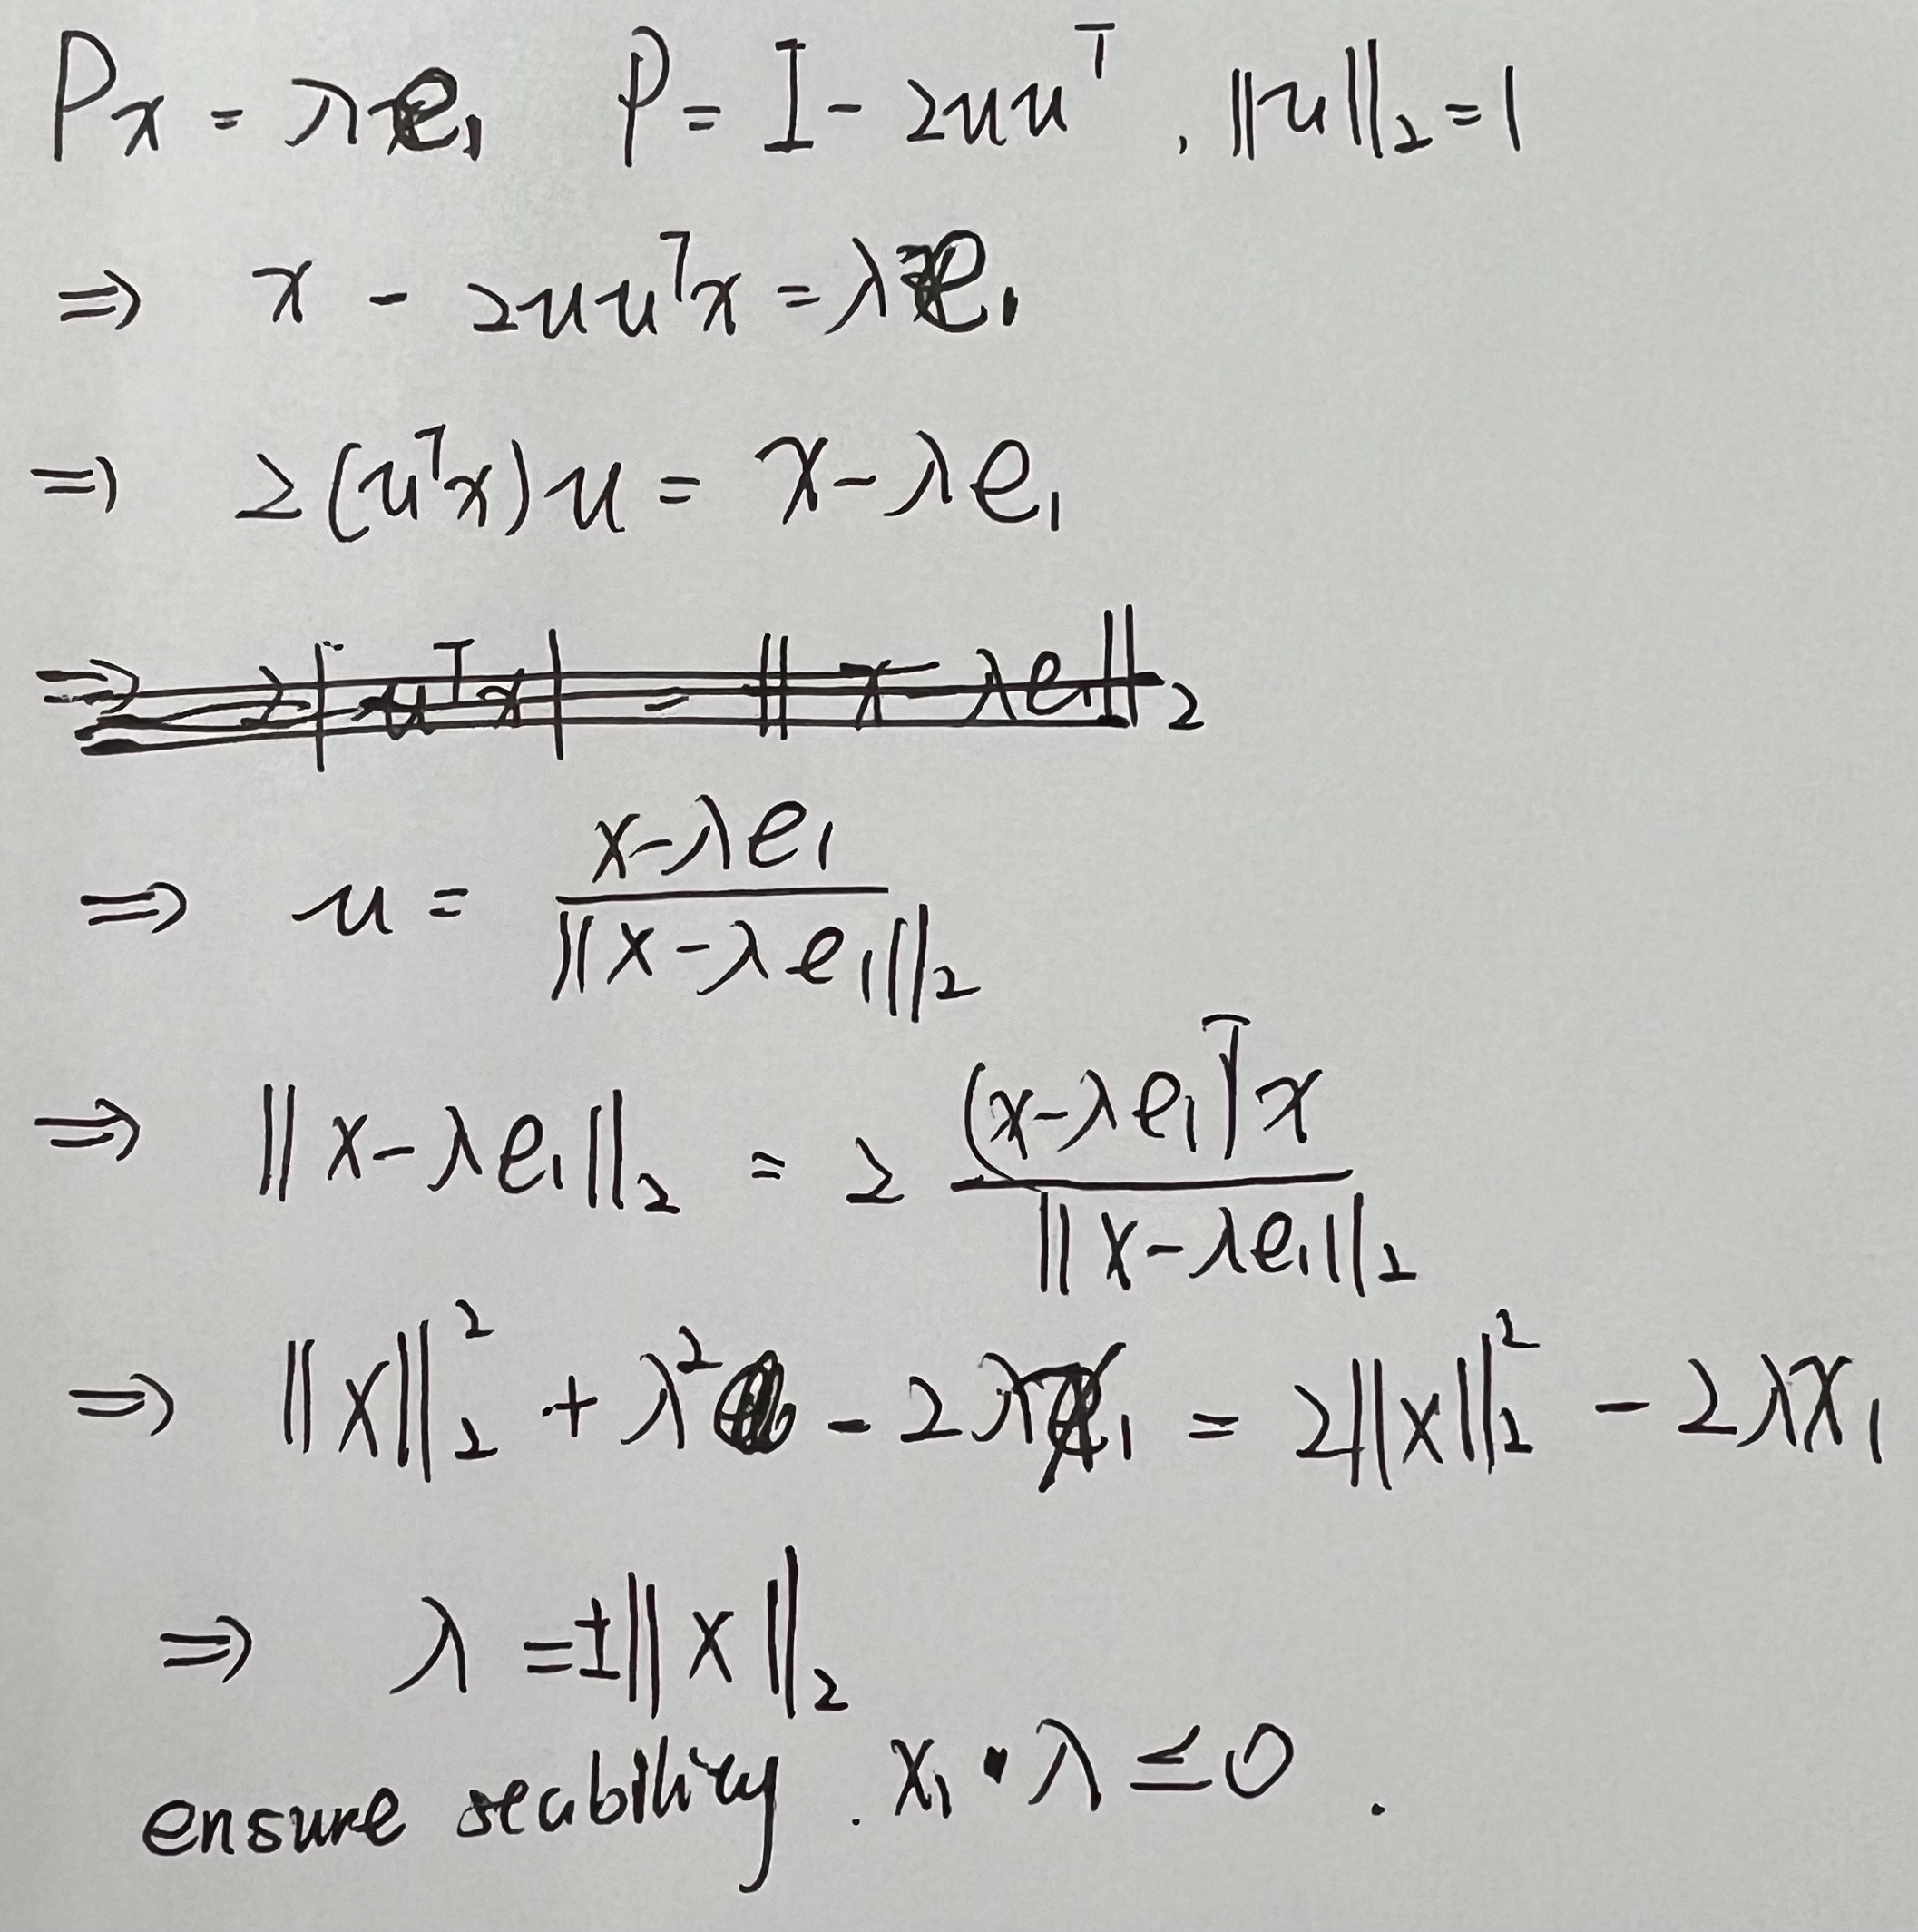 Px = λe₁ P = I - 2uuᵀ , ||u||₂ = 1
⇒ x - 2uuᵀx = λe₁
⇒ 2(uᵀx)u = x - λe₁
⇒ 2|uᵀx| = ||x - λe₁||₂
⇒ u = (x-λe₁)/||x-λe₁||₂
⇒ ||x-λe₁||₂ = 2 (x-λe₁)ᵀx/||x-λe₁||₂
⇒ ||x||₂² + λ² - 2λx₁ = 2||x||₂² - 2λx₁
⇒ λ = ±||x||₂
ensure stability . x₁ · λ ≤ 0 .